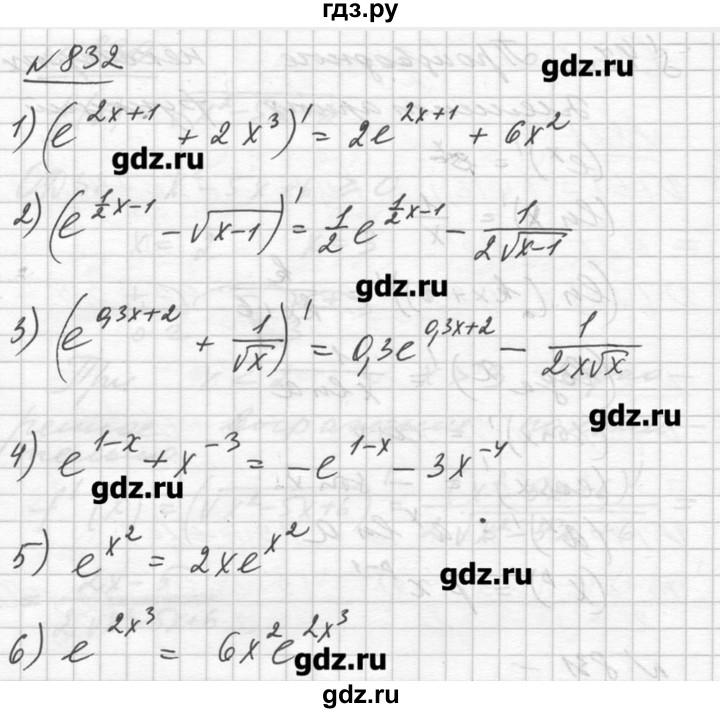 гдз.ру
№ 832
gdz.ru
1) (e^{2x+1} + 2x^3)' = 2e^{2x+1} + 6x^2
gdz.ru
2) (e^{\frac{1}{2}x-1} - \sqrt{x-1})' = \frac{1}{2}e^{\frac{1}{2}x-1} - \frac{1}{2\sqrt{x-1}}
gdz.ru
3) (e^{0,3x+2} + \frac{1}{\sqrt{x}})' = 0,3e^{0,3x+2} - \frac{1}{2x\sqrt{x}}
gdz.ru
4) e^{1-x} + x^{-3} = -e^{1-x} - 3x^{-4}
gdz.ru
5) e^{x^2} = 2xe^{x^2}
gdz.ru
6) e^{2x^3} = 6x^2e^{2x^3}
gdz.ru
gdz.ru